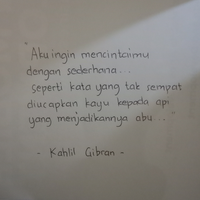 "Aku ingin mencintaimu
dengan sederhana...
seperti kata yang tak sempat
diucapkan kayu kepada api
yang menjadikannya abu..."
- Kahlil Gibran -